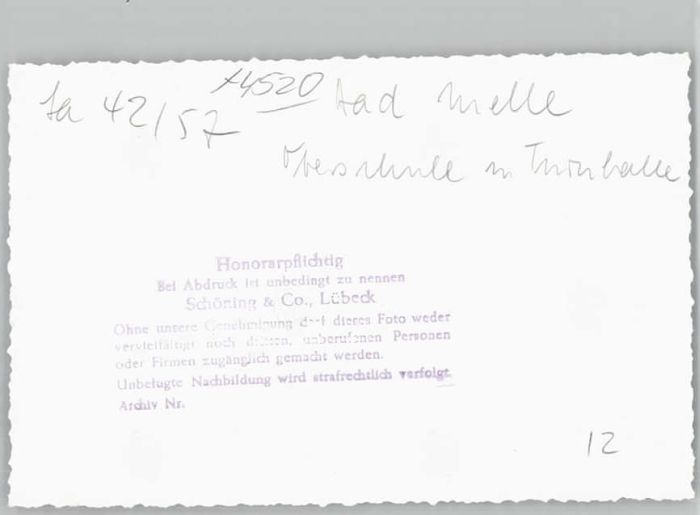 Ja 42/57 +4520 Bad Melle
Oberschule m Turnhalle
Honorarpflichtig
Bei Abdruck ist unbedingt zu nennen
Schöning & Co., Lübeck
Ohne unsere Genehmigung darf dieses Foto weder
vervielfältigt noch dritten, unberufenen Personen
oder Firmen zugänglich gemacht werden.
Unbefugte Nachbildung wird strafrechtlich verfolgt.
Archiv Nr.
12